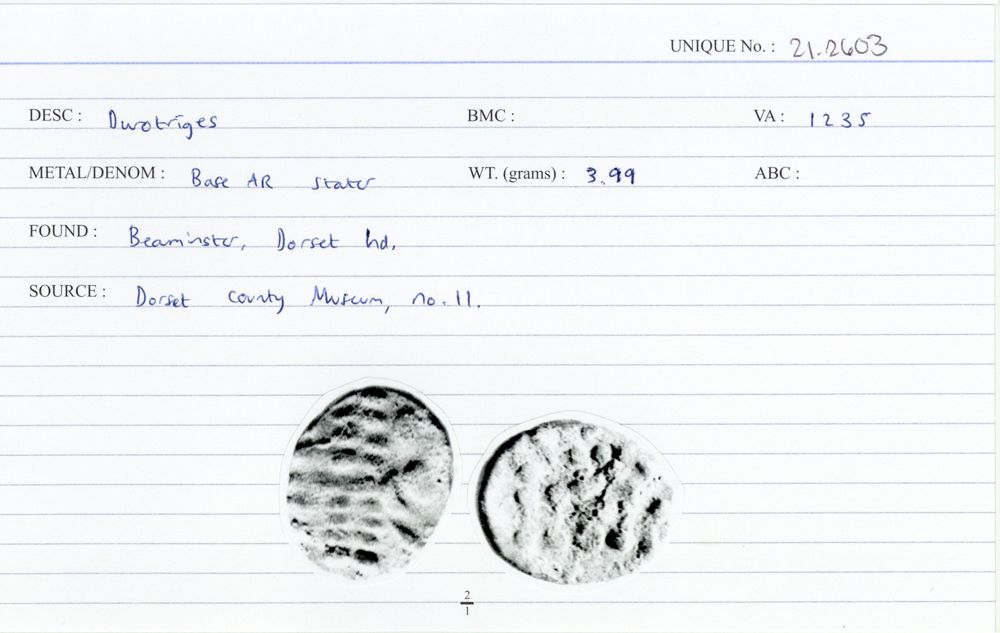 UNIQUE No. : 21.2603
DESC : Durotriges BMC : VA : 1235
METAL/DENOM : Base AR stater WT. (grams) : 3.99 ABC :
FOUND : Beaminster, Dorset hd.
SOURCE : Dorset County Museum, no. 11.
2
1